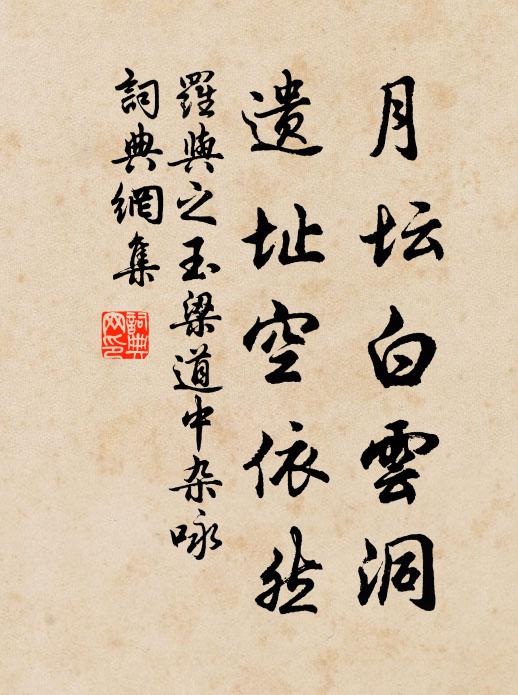 月坛白雲洞
遗址空依然
羅與之玉梁道中杂咏
詞典網集
詞典
网印